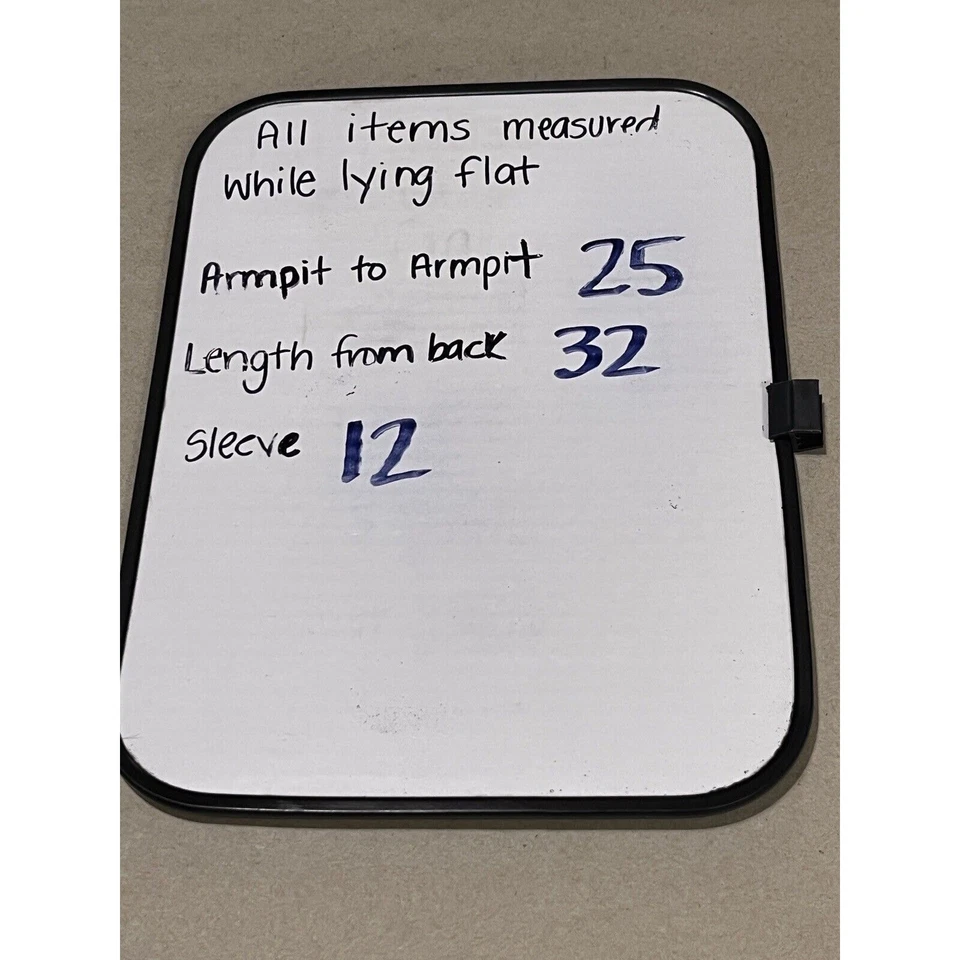 All items measured
while lying flat
Armpit to Armpit 25
Length from back 32
Sleeve 12